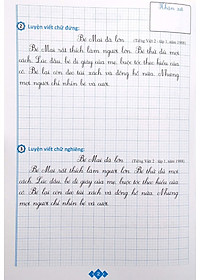 Nhận xét
2 Luyện viết chữ đứng:
Bé Mai đã lớn (Tiếng Việt 2 - tập 1, năm 1988)
Bé Mai rất thích làm người lớn. Bé thử đủ mọi
cách. Lúc đầu, bé đi giày của mẹ, buộc tóc theo kiểu của
cô. Bé lại còn đeo túi xách và đồng hồ nữa. Nhưng
mọi người chỉ nhìn bé và cười.
Luyện viết chữ nghiêng:
Bé Mai đã lớn (Tiếng Việt 2 - tập 1, năm 1988)
Bé Mai rất thích làm người lớn. Bé thử đủ mọi
cách. Lúc đầu, bé đi giày của mẹ, buộc tóc theo kiểu của
cô. Bé lại còn đeo túi xách và đồng hồ nữa. Nhưng
mọi người chỉ nhìn bé và cười.